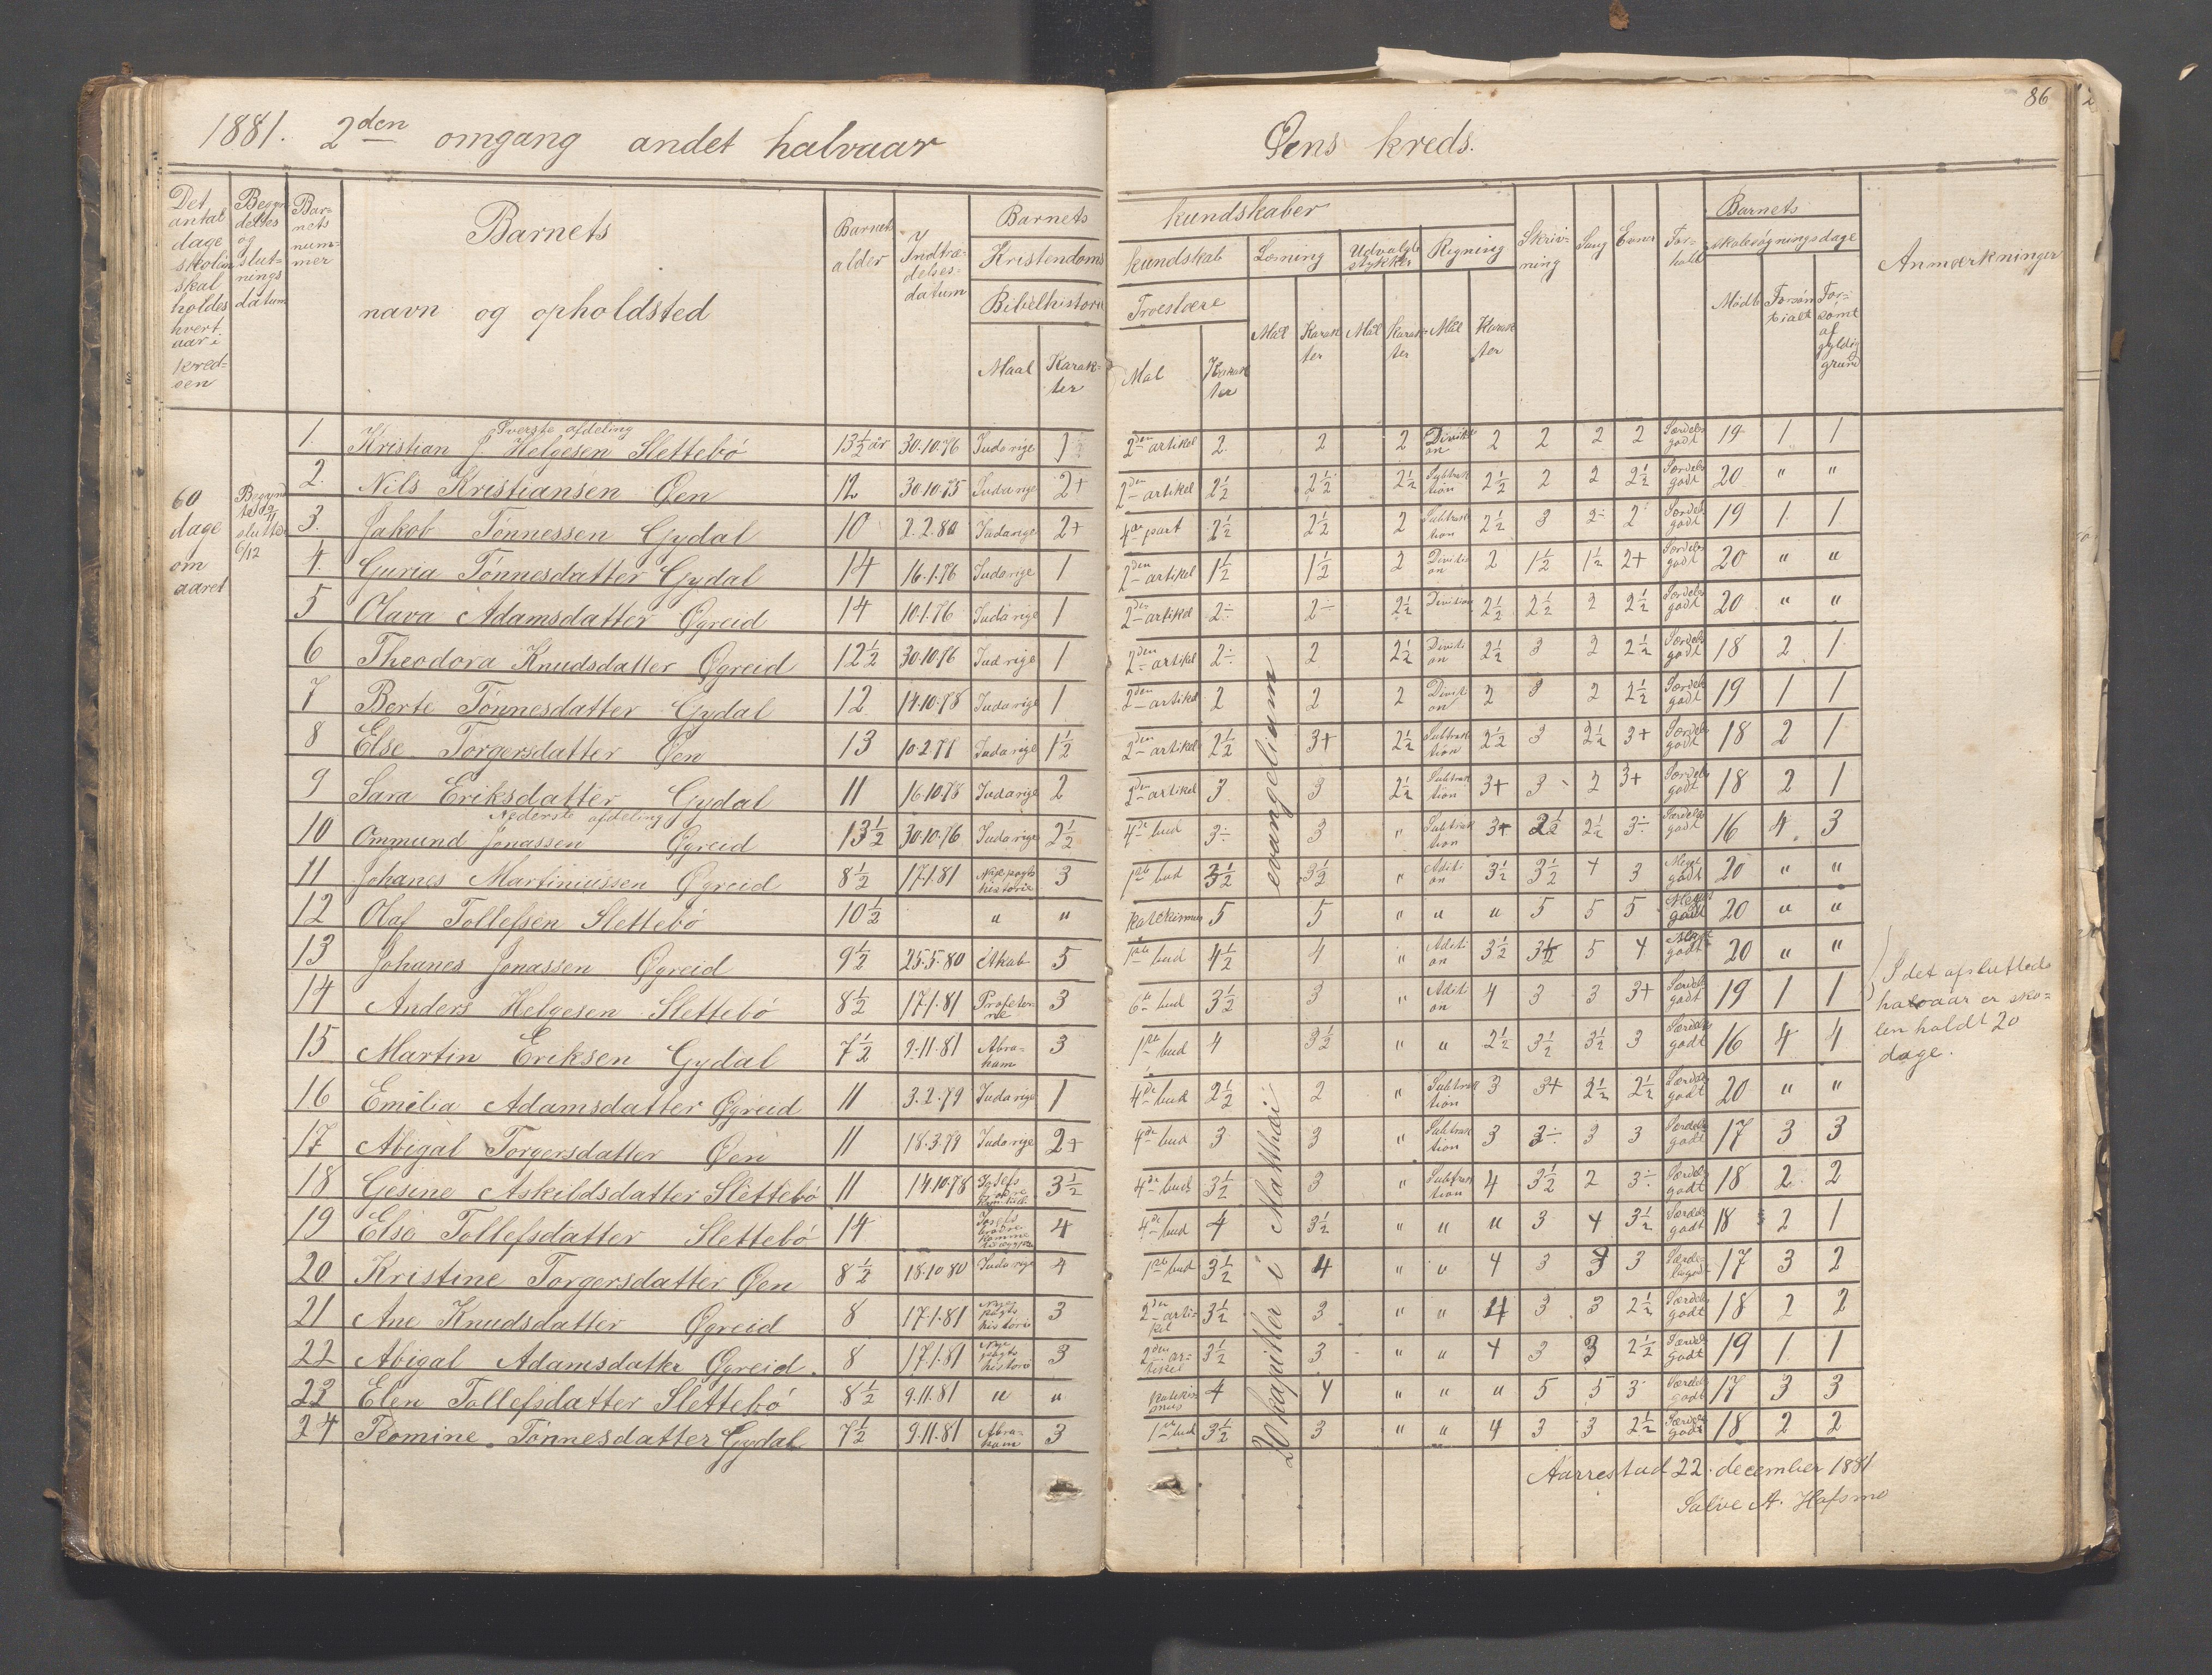 86
1881. 2den omgang andet halvaar Øens kreds.
Det antal dage skolen skal holdes hvert aar i kredsen
Begyndelses og slutnings datum
Barnets nummer
Barnets navn og opholdsted
Barnets alder
Indtrædelses-datum
Barnets kundskaber
Kristendoms kundskab
Bibelhistorie Maal Karakter
Troeslære Mal Karakter
Læsning Mål Karakter
Udvalgte stykker Mål Karakter
Regning Mål Karakter
Skrivning Sang Evner Forhold
Barnets skolesøgningsdage
Mødt Forsømt ialt Forsømt af gyldig grund
Anmærkninger
60 dage om aaret
Øverste afdeling
1. Kristian J. Helgesen Slettebö 13½ år 30.10.76 Juda rige 1 2den artikel 2 2 2 Division 2 2 2 2 Særdeles godt 19 1 1
2. Nils Kristiansen Øen 12 30.10.75 Juda rige 2+ 2den artikel 2½ 2½ 2½ Subtraktion 2½ 2 2 2½ Særdeles godt 20 " "
3. Jakob Tønnessen Gydal 10 2.2.80 Juda rige 2+ 4de part 2½ 2½ 2 Subtraktion 2½ 3 2÷ 2 Særdeles godt 19 1 1
4. Guria Tønnesdatter Gydal 14 16.1.76 Juda rige 1 2den artikel 1½ 1½ 2 Division 2 1½ 1½ 2+ Særdeles godt 20 " "
5 Olava Adamsdatter Øgreid 14 10.1.76 Juda rige 1 2den artikel 2÷ 2÷ 2½ Division 2½ 2½ 2 2½ Særdeles godt 20 " "
6 Theodora Knudsdatter Øgreid 12½ 30.10.76 Juda rige 1 2den artikel 2÷ 2 2½ Division 2½ 3 2 2½ Særdeles godt 18 2 1
7 Berte Tønnesdatter Gydal 12 14.10.78 Juda rige 1 2den artikel 2 2 2 Division 2 3 2 2½ Særdeles godt 19 1 1
8 Else Torgersdatter Øen 13 10.2.77 Juda rige 1½ 2den artikel 2½ 3+ 2½ Subtraktion 2½ 3 2½ 3+ Særdeles godt 18 2 1
9 Sara Eriksdatter Gydal 11 16.10.78 Juda rige 2 2den artikel 3 3 2½ Subtraktion 3+ 3 2 3+ Særdeles godt 18 2 1
Nederste afdeling
10 Ommund Jonassen Øgreid 13½ 30.10.76 Juda rige 2½ 4de bud 3÷ 3 " Subtraktion 3+ 2½ 2½ 3÷ Særdeles godt 16 4 3
11 Johanes Martiniussen Øgreid 8½ 17.1.81 historie 3 1ste bud 3½ 3½ " Adition 3½ 3½ 4 3 Meget godt 20 " "
12 Olaf Tollefsen Slettebö 10½ " " Katekismus 5 5 " " " 5 5 5 Meget godt 20 " "
13 Johanes Jonassen Øgreid 9½ 25.5.80 Akab 5 1ste bud 4½ 4 " Adition 3½ 3½ 5 4 Meget godt 20 " "
14 Anders Helgesen Slettebö 8½ 17.1.81 Profeterne 3 6te bud 3½ 3 " Adition 4 3 3 3+ Særdeles godt 19 1 1
15 Martin Eriksen Gydal 7½ 9.11.81 Abraham 3 1ste bud 4 3½ " " 2½ 3½ 3½ 3 Særdeles godt 16 4 4
16 Emelia Adamsdatter Øgreid 11 3.2.79 Juda rige 1 4de bud 2½ 2 " Subtraktion 3 3+ 2½ 2½ Særdeles godt 20 " "
17 Abigal Torgersdatter Øen 11 18.3.79 Juda rige 2+ 4de bud 3 3 " Subtraktion 3 3÷ 3 3 Særdeles godt 17 3 3
18 Gesine Askildsdatter Slettebö 11 14.10.78 Josefs 3½ 4de bud 3½ 3 " Subtraktion 4 3½ 2 3÷ Særdeles godt 18 2 2
19 Else Tollefsdatter Slettebö 14 Josefs brødre komme 4 4de bud 4 3½ " " " 3 4 3½ Særdeles godt 18 2 1
20 Kristine Torgersdatter Øen 8½ 18.10.80 Juda rige 4 1ste bud 3½ 4 " " 4 3 3 3 17 3 2
21 Ane Knudsdatter Øgreid 8 17.1.81 historie 3 2den artikel 3½ 3 " " 4 3 3 2½ Særdeles godt 18 2 2
22 Abigal Adamsdatter Øgreid. 8 17.1.81 historie 3 2den artikel 3½ 3 " " 4 3 3 2½ Særdeles godt 19 1 1
23 Elen Tollefsdatter Slettebö 8½ 9.11.81 " " Katekismus 4 4 " " " 5 5 3 Særdeles godt 17 3 3
24 Romine Tönnesdatter Gydal 7½ 9.11.81 Abraham 3 1ste bud 3½ 3 " " 4 3 3 2½ Særdeles godt 18 2 2
20 kapitler i Matthæi evangelium
I det afsluttede
halvaar er sko-
len holdt 20
dage.
Aarrestad 22. december 1881
Salve A. Hafsmo